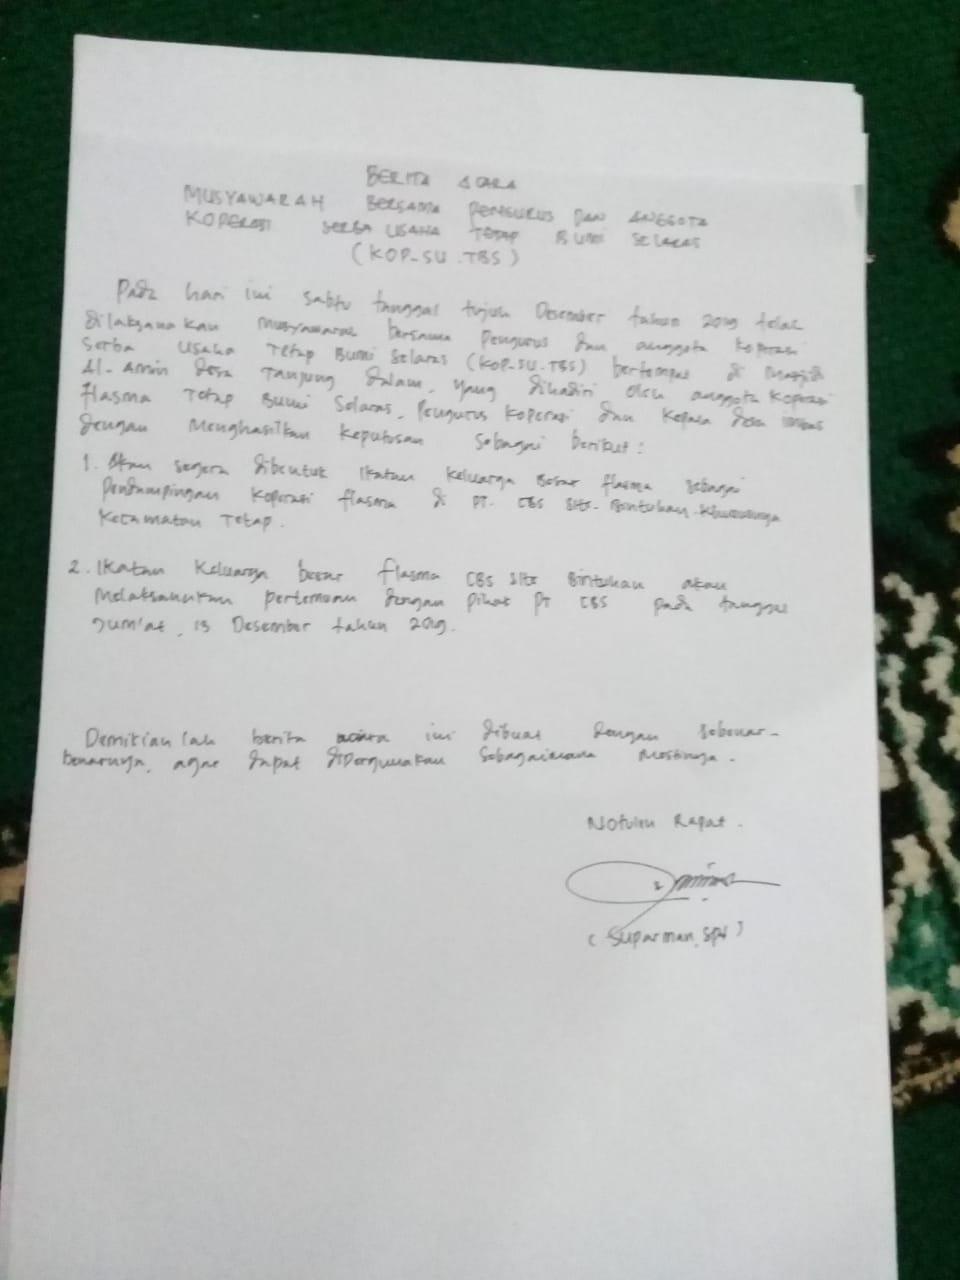 BERITA ACARA
MUSYAWARAH BERSAMA PENGURUS DAN ANGGOTA
KOPERASI SERBA USAHA TETAP BUMI SELARAS
(KOP-SU.TBS)
Pada hari ini sabtu tanggal tujuh Desember tahun 2019 telah
dilaksanakan Musyawarah bersama Pengurus dan anggota koperasi
Serba Usaha Tetap Bumi Selaras (KOP-SU.TBS) bertempat di Masjid
Al-Amin desa Tanjung dalam, yang dihadiri oleh anggota Koperasi
flasma Tetap Bumi Selaras, Pengurus Koperasi dan Kepala desa
dengan Menghasilkan Keputusan sebagai berikut:
1. Akan segera dibentuk Ikatan Keluarga Besar flasma sebagai
Pendampingan Koperasi flasma di PT. CBS Site-Bintuhan-Khususnya
Kecamatan Tetap.
2. Ikatan Keluarga besar flasma CBS Site Bintuhan akan
Melaksanakan pertemuan dengan pihak PT CBS pada tanggal
Jum'at, 13 Desember tahun 2019.
Demikian lah berita acara ini dibuat dengan sebenar-
benarnya, agar dapat dipergunakan Sebagaimana Mestinya.
Notulen Rapat.
(Suparman, SPd)